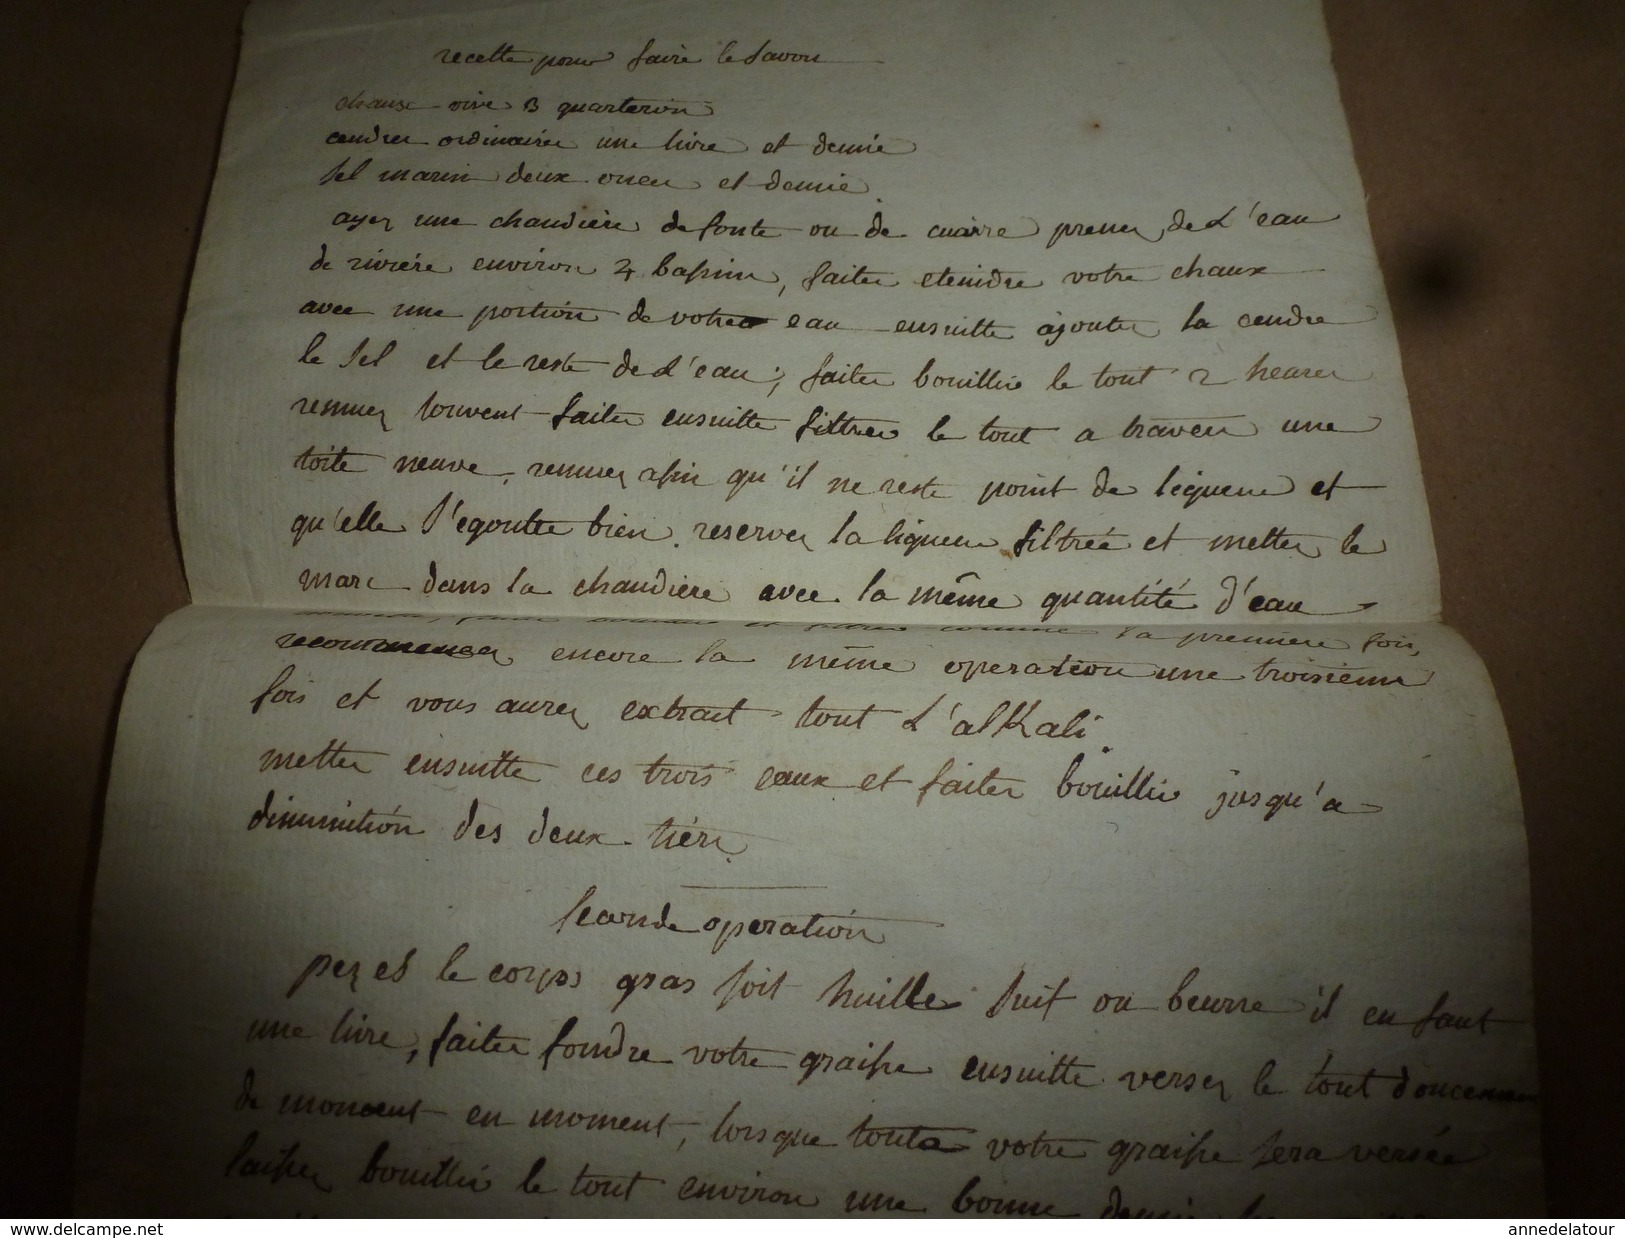 recette pour faire le savon
chaux vive 3 quarteron
cendres ordinaires une livre et demie
sel marin deux onces et demie
ayez une chaudiere de fonte ou de cuivre prenez de l'eau
de riviére environ 4 bassins, faites eteindre votre chaux
avec une portion de votre eau ensuitte ajoutez la cendre
le sel et le reste de l'eau; faites bouillir le tout 2 heures
remuez souvent faites ensuitte filtrer le tout a travers une
toile neuve, remuez afin qu'il ne reste point de liqueur et
qu'elle s'egoutte bien. reservez la liqueur filtrée et mettez le
marc dans la chaudiere avec la même quantité d'eau
comme la premiere fois,
recommencez encore la même operation une troisieme
fois et vous aurez extrait tout l'alkali.
mettez ensuitte ces trois eaux et faites bouillir jusqu'a
diminution des deux tiers.
seconde operation
pezes le corps gras soit huille suif ou beurre il en faut
une livre, faites fondre votre graisse ensuitte versez le tout doucement
de moment en moment, lorsque toute votre graisse sera versée
laissez bouillir le tout environ une bonne demie
www.delcampe.net
annedelatour